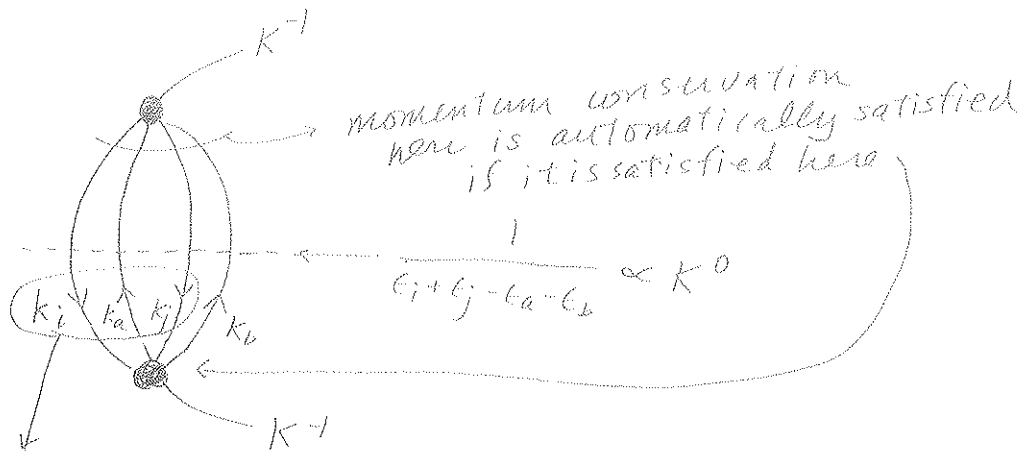 K^-1
momentum conservation
here is automatically satisfied
if it is satisfied here
1
ϵ_i + ϵ_j - ϵ_a - ϵ_b ∝ K^0
k_i k_a k_j k_b
K^-1